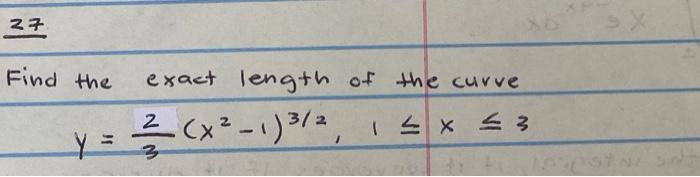 27
Find the exact length of the curve
y = 2/3 (x² - 1)^3/2, 1 ≤ x ≤ 3